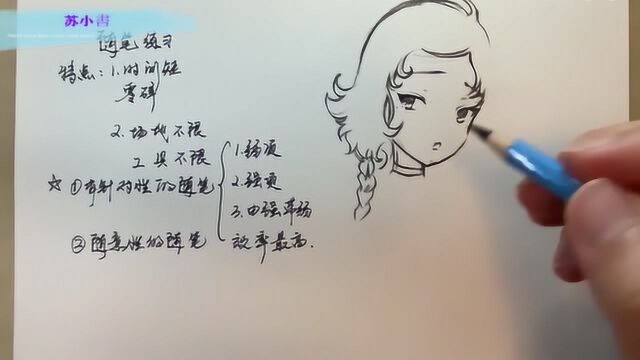 苏小書
随笔练习
特点:1.时间短
零碎
2.场地不限
工具不限
☆ ①有针对性的随笔
1.弱项
2.强项
3.由强带弱
②随意性的随笔
效率最高.